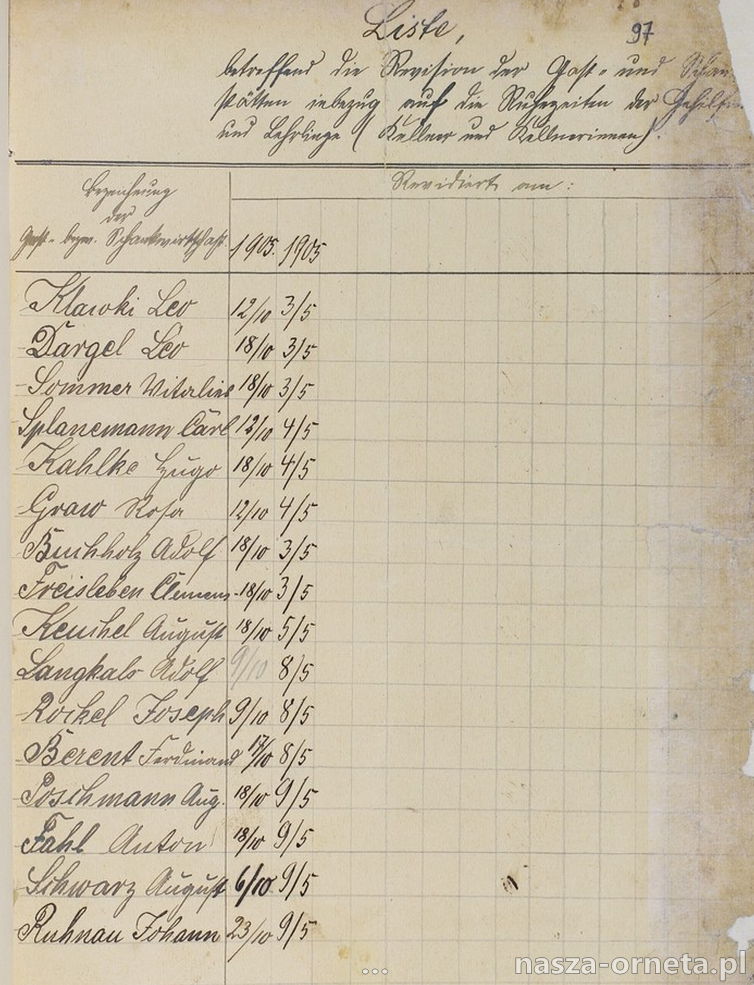 Liste,
97
betreffend die Revision der Gast- und Schan
stätten inbezug auf die Ruhezeiten der Gehilfen
und Lehrlinge (Kellner und Kellnerinnen).
Bezeichnung
der
Gast- bezw. Schankwirtschaft
Revidiert am:
1905. 1905
Klawki Leo 12/10 3/5
Dargel Leo 18/10 3/5
Sommer Vitalies 18/10 3/5
Splanemann Carl 12/10 4/5
Kahlke Hugo 18/10 4/5
Graw Rosa 12/10 4/5
Buchholz Adolf 18/10 3/5
Freisleben Clemens 18/10 3/5
Keuchel August 18/10 5/5
Langkals Adolf 9/10 8/5
Rockel Joseph 9/10 8/5
Berent Ferdinand 17/10 8/5
Poschmann Aug. 18/10 9/5
Fahl Anton 18/10 9/5
Schwarz August 6/10. 9/5
Ruhnau Johann 23/10 9/5
...
nasza-orneta.pl